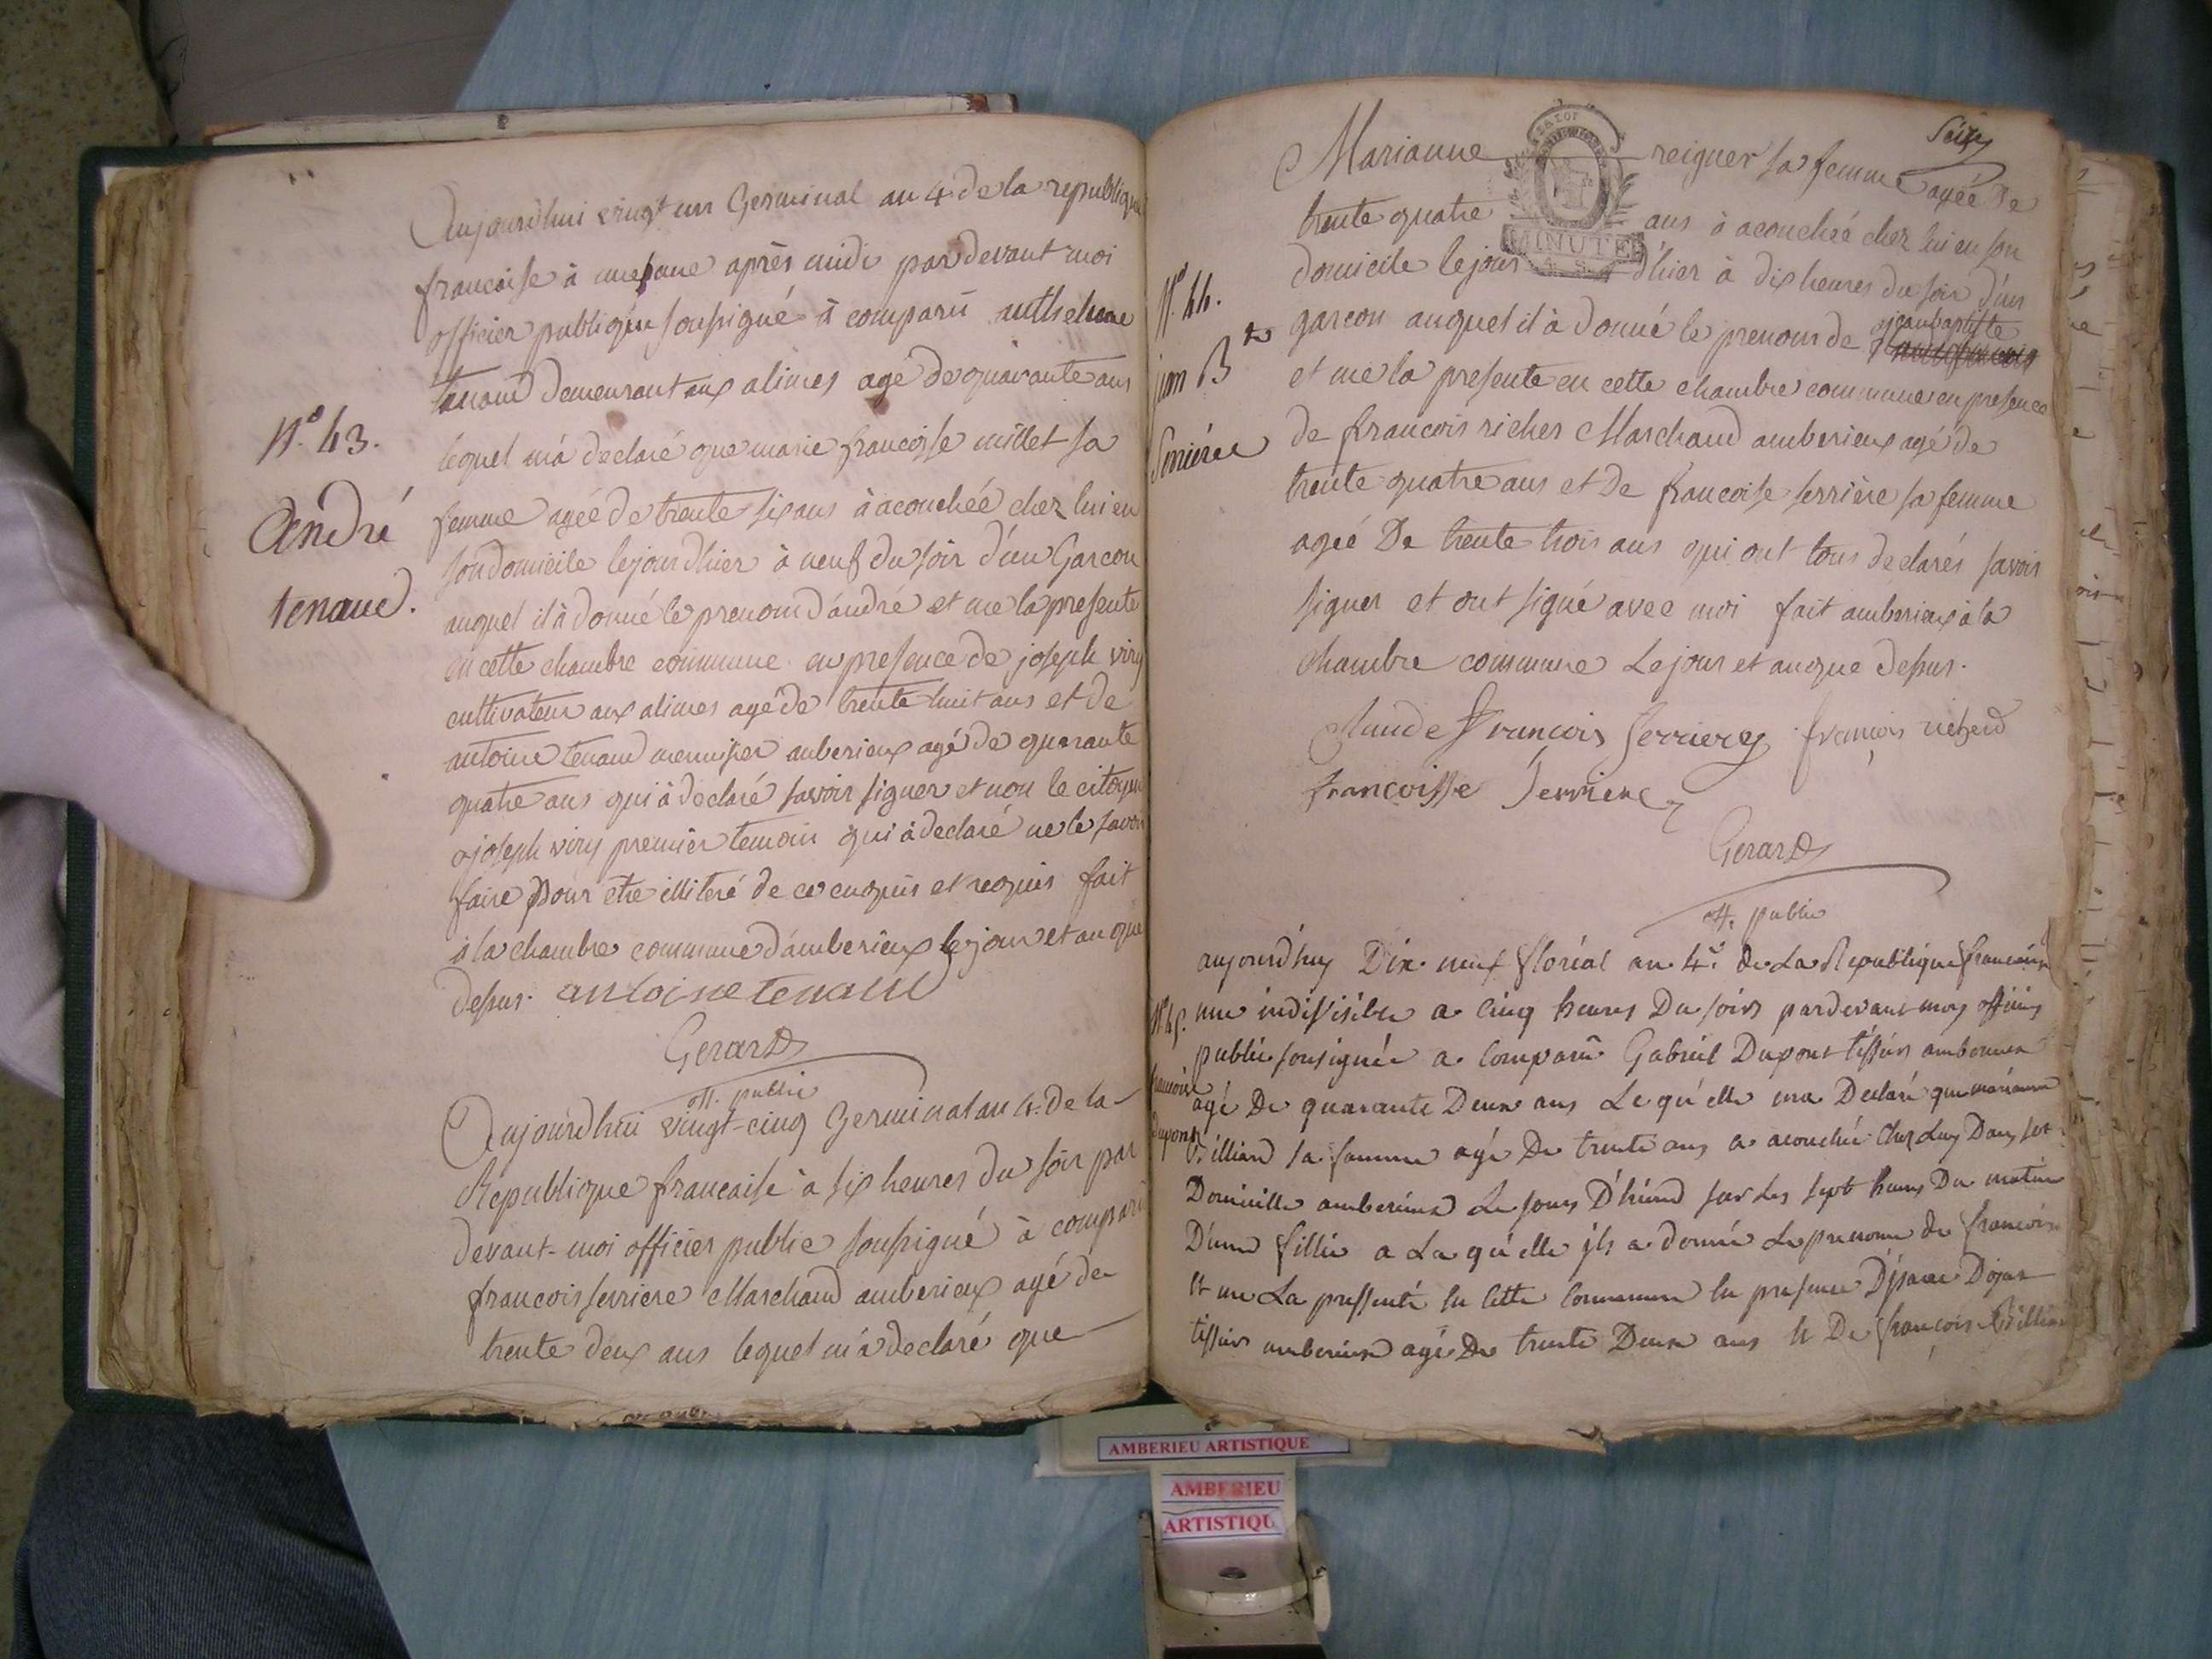 Aujourdhui vingt un Germinal an 4 de la republique
francaise à une heure après midi par devant moi
officier publique soussigné à comparû anthelme
tenand demeurant aux alimes agé de quarante ans
N.º 43.
lequel m'à declaré que marie francoise millet sa
André
femme agée de trente six ans à acouchée chez lui en
son domicile le jour dhier à neuf du soir d'un Garcon
tenand.
auquel il à donné le prenom d'andré et me la presente
en cette chambre commune en presence de joseph viry
cultivateur aux alimes agé de trente huit ans et de
antoine tenand menuisier amberieux agé de quarante
quatre ans qui à declaré savoir signer et non le citoyen
joseph viry premier temoin qui à declaré ne le savoir
faire pour etre illiteré de ce enquis et requis fait
à la chambre commune d'amberieux le jour et an que
dessus. antoine tenand
Gerard
off. public
Aujourdhui vingt-cinq Germinal an 4. de la
Republique francaise à six heures du soir par
devant-moi officier public soussigné à comparû
francois serriere Marchand amberieux agé de
trente deux ans lequel m'à declaré que
Seize
Marianne reigner sa femme agée De
trente quatre ans à acouchée chez lui en son
MINUTE
domicile le jour d'hier à dix heures du soir d'un
N.º 44.
garcon auquel il à donné le prenom de jeanbaptiste
jean Bte
et me la presente en cette chambre commune en presence
Serriere
de francois richer Marchand amberieux agé de
trente quatre ans et de francoise serrière sa femme
agée De trente trois ans qui ont tous declarés savoir
signer et ont signé avec moi fait amberieux à la
chambre commune Le jour et an que dessus.
Claude François Serriere françois richerd
francoisse Serriere
Gerard
off. public
aujourd'huy Dix neuf floréal an 4.e de La Republique francaise
N.º 45.
une indissisible a cinq heures Du soirs pardevant moy officiers
public sousignée a comparû Gabriel Dupont tissier amberieux
francoise
agé De quarante Deux ans Le qu'elle ma Declaré que marianne
dupont
sa famme agé De trente ans a acouchée Chez Luy Dans son
Domicille amberieux Le jours D'hierd sur Les sept heures Du matin
D'une fillie a La qu'elle jls a donné Le prenome de francoise
et me La pressenté en cette commune en presence
tissier amberieux agé De trente Deux ans et De françois
AMBERIEU ARTISTIQUE
AMBERIEU
ARTISTIQU